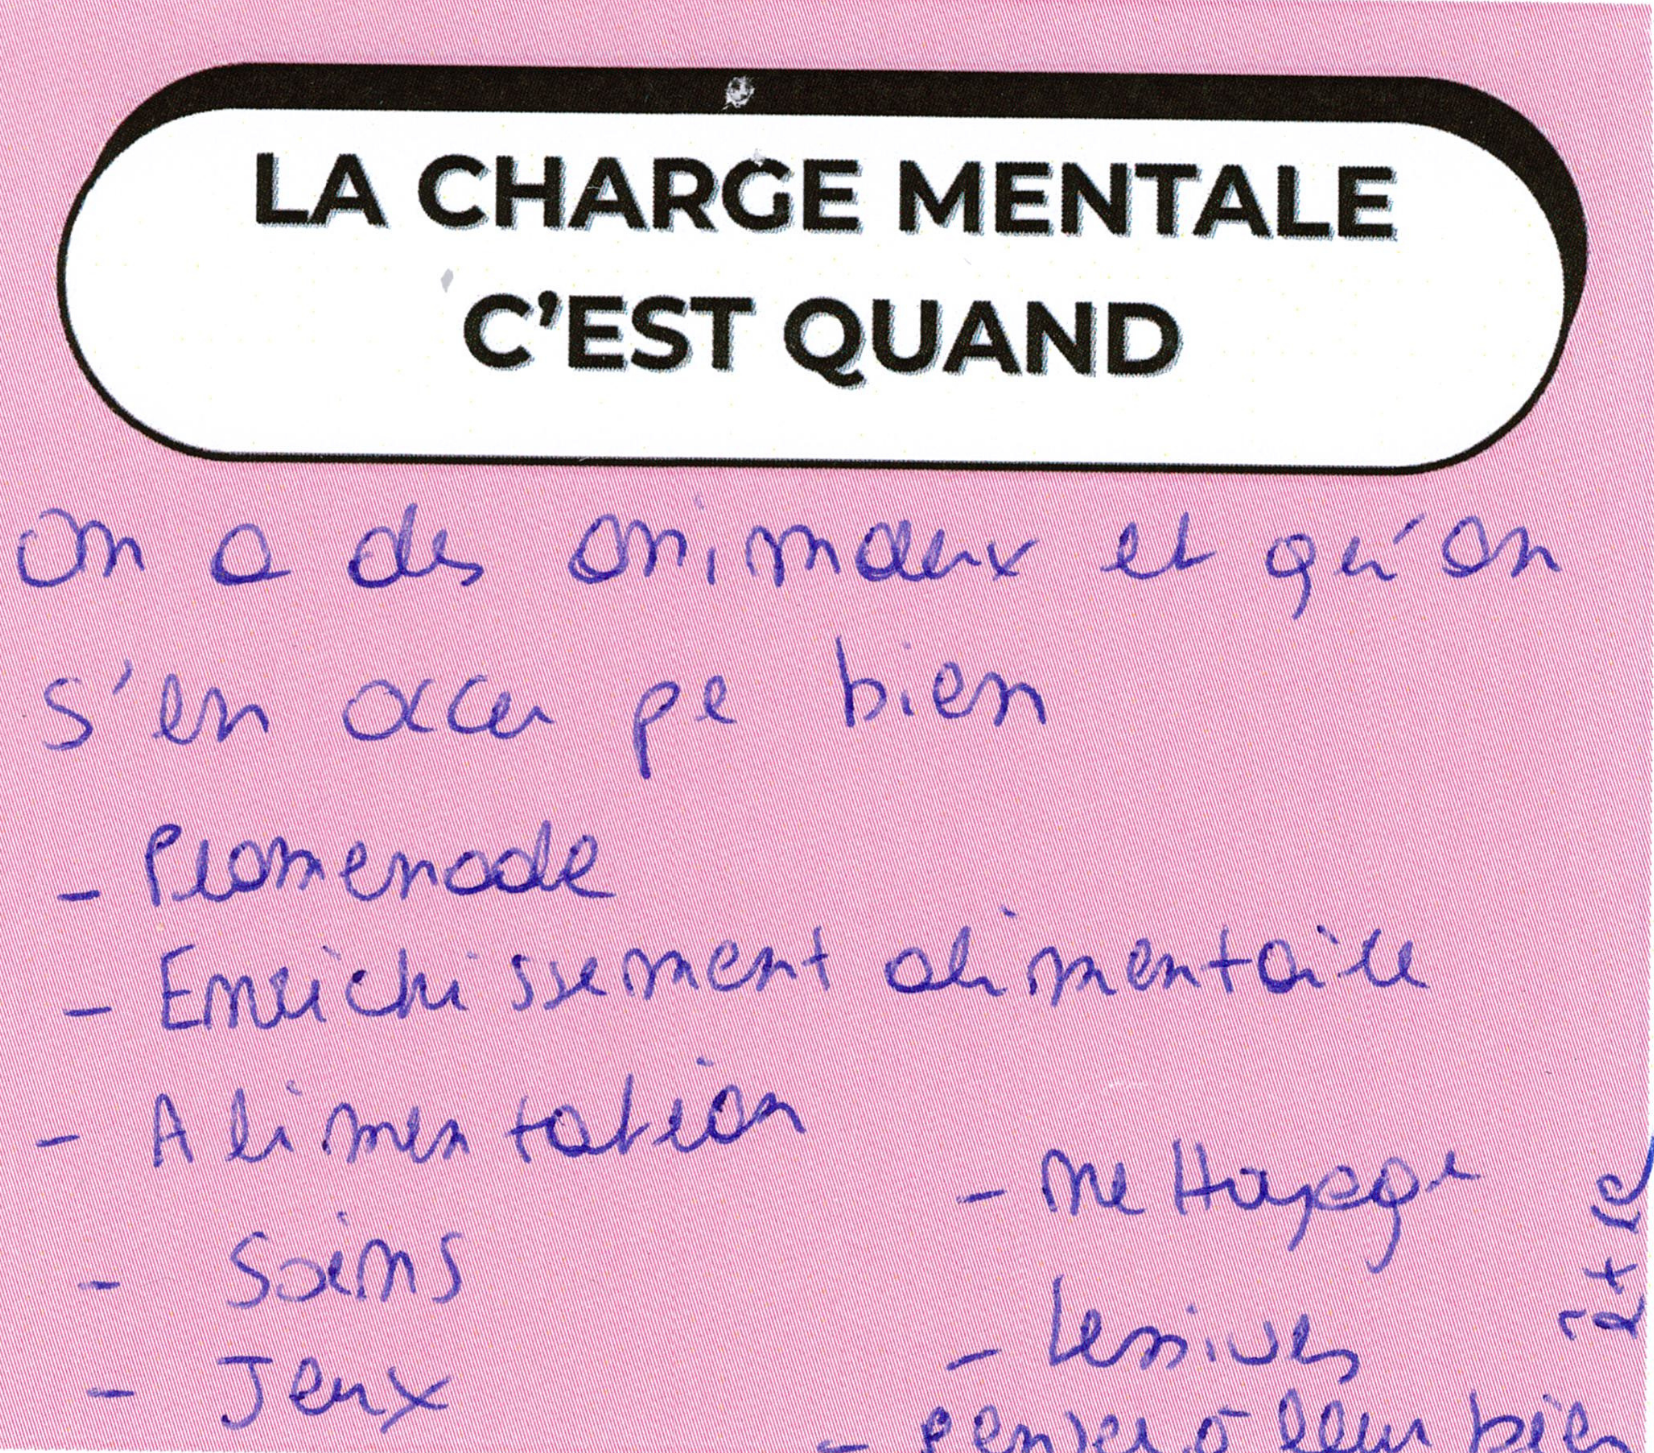 LA CHARGE MENTALE
C'EST QUAND
On a des animaux et qu'on
s'en occupe bien
- Promenade
- Enrichissement alimentaire
- Alimentation
- Soins
- Jeux
- Nettoyage
- Lessives
- penser à leur bien
être